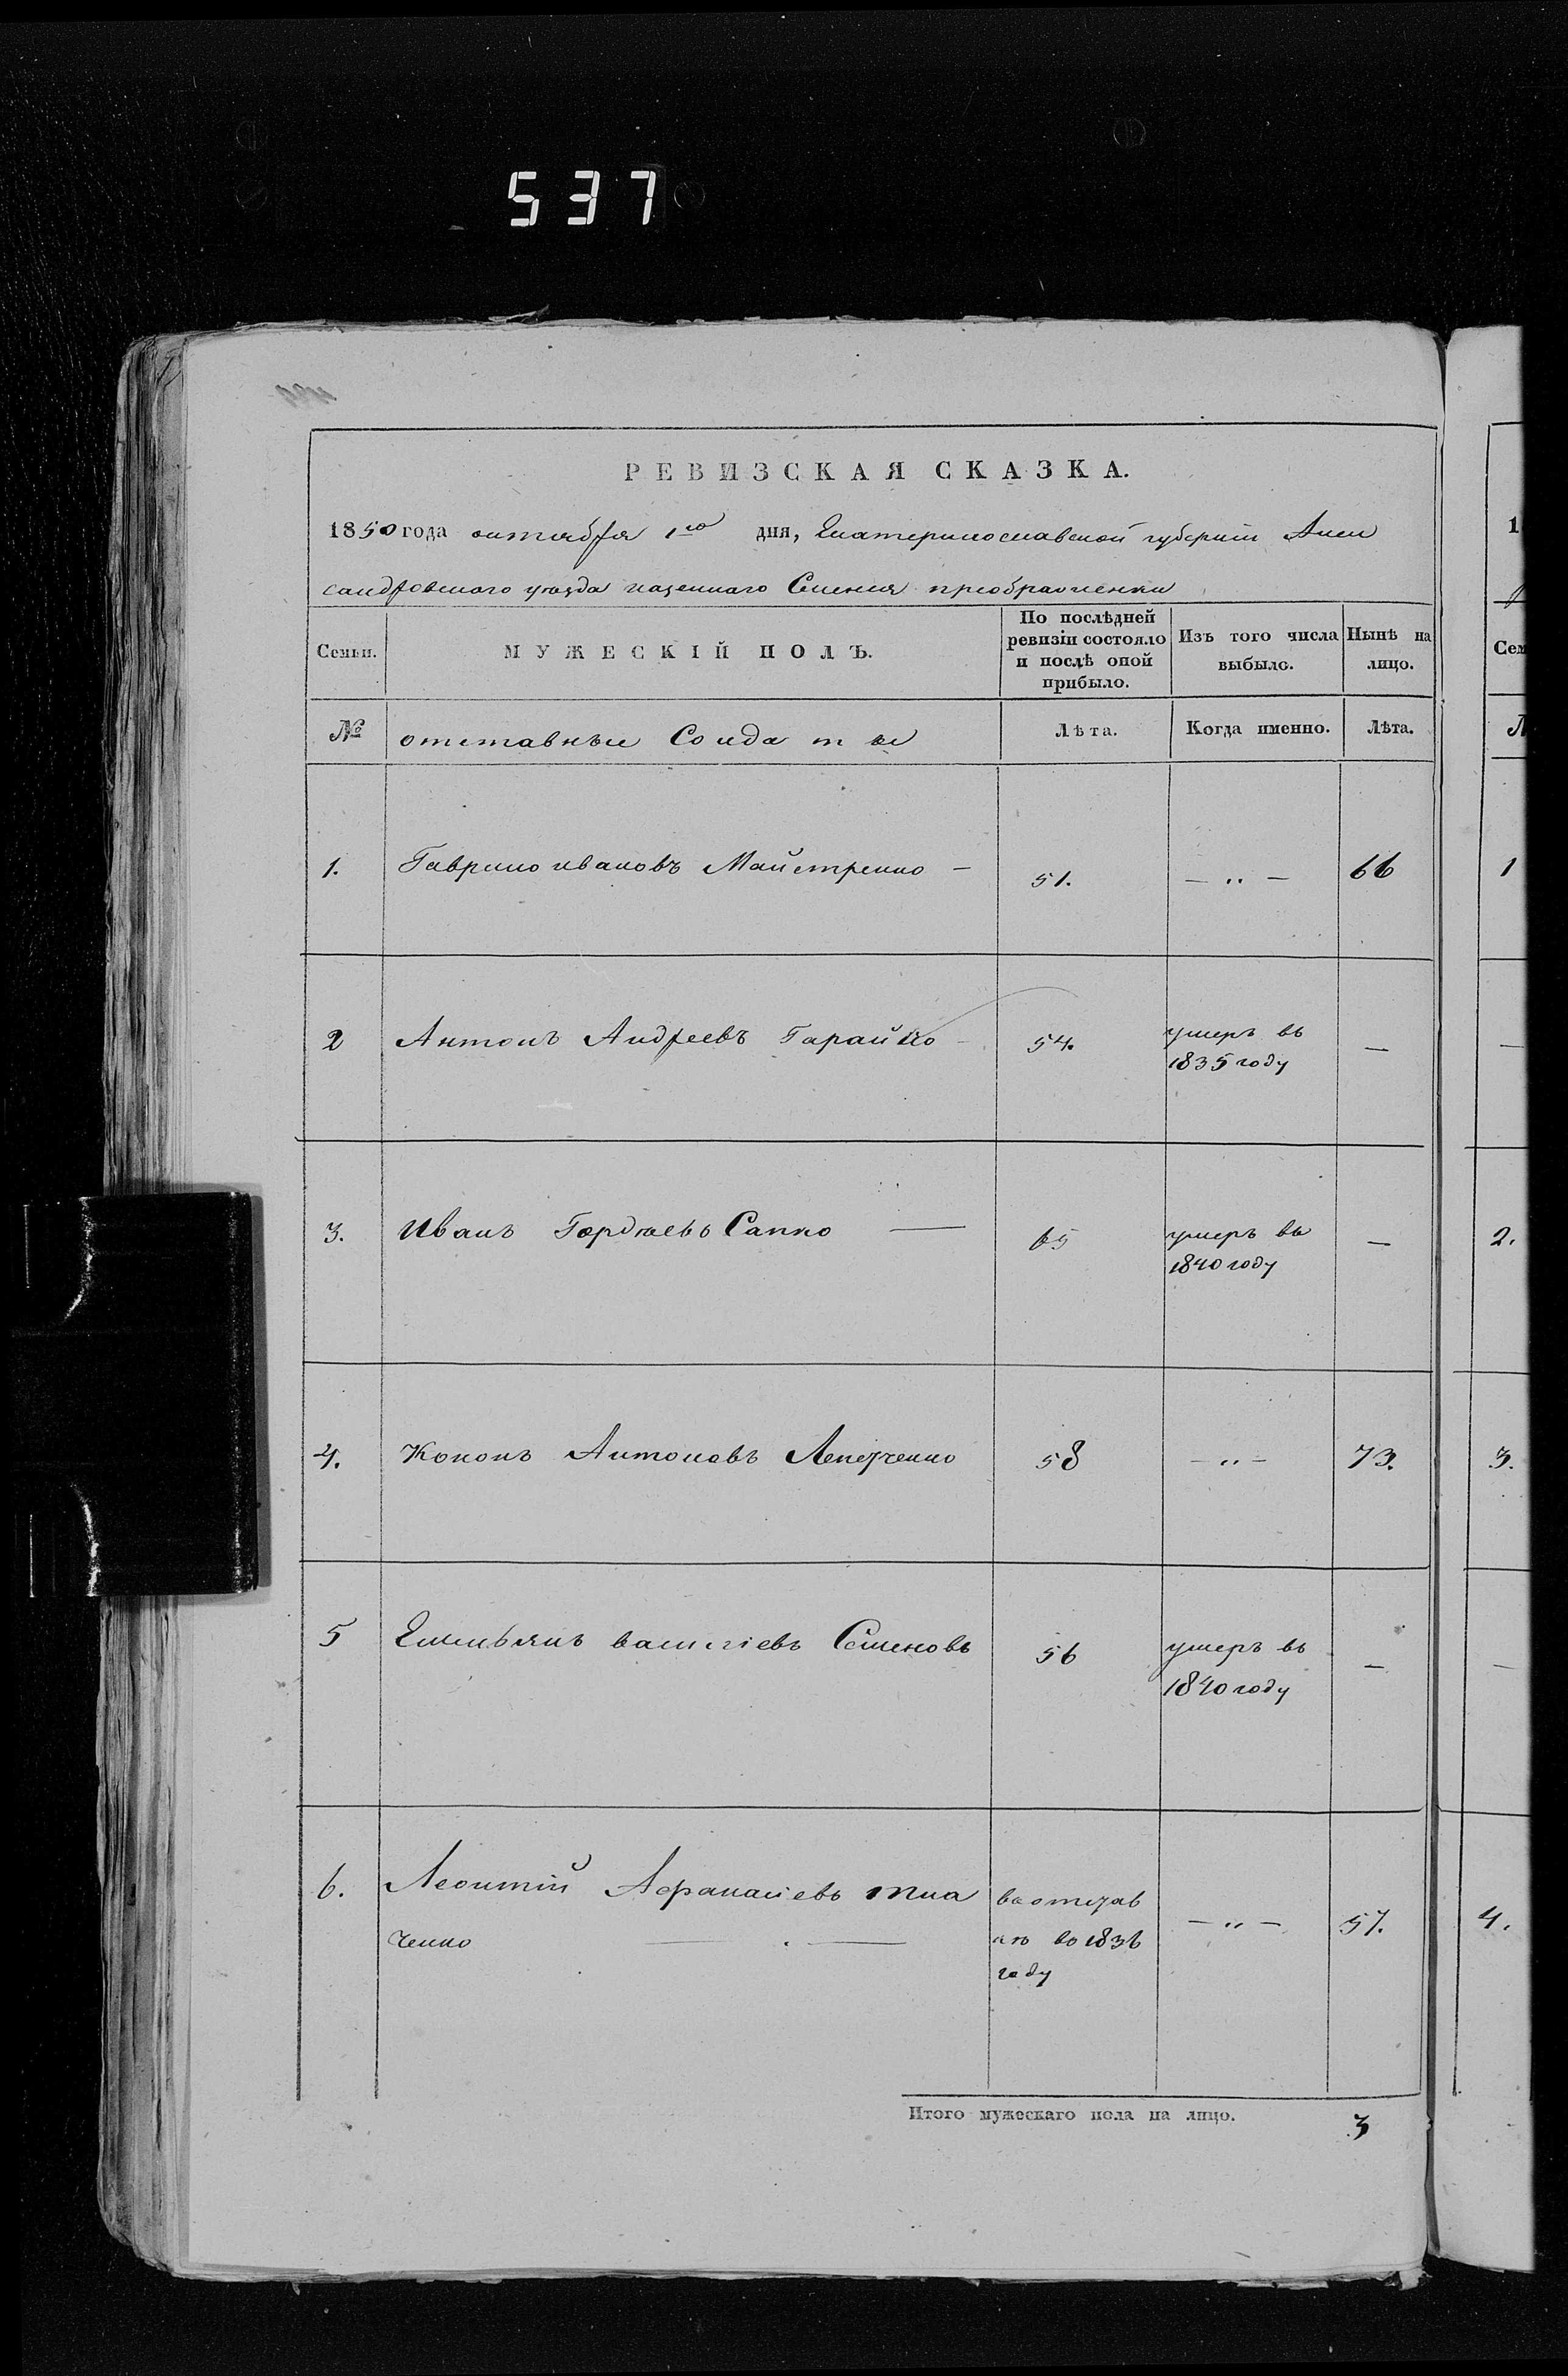 537
РЕВИЗСКАЯ СКАЗКА.
1850 года октября 1го дня, Екатеринославской губернiи Алек
сандровского уѣзда казенного Селенiя преображенки
Семьи.
МУЖЕСКІЙ ПОЛЪ.
По послѣдней
ревизіи состояло
и послѣ оной
прибыло.
Изъ того числа
выбыло.
Нынѣ на
лицо.
№ отставные Солдаты Лѣта. Когда именно. Лѣта.
1. Гаврило ивановъ Майстренко — 51. — " — 66
2 Антонъ Андреевъ Гарайко - 54. умеръ въ —
1835 году
3. Иванъ Гордѣевъ Сапко — 65 умеръ въ —
1840 году
4. Кононъ Антоновъ 58 — " — 73.
5 Емельянъ василіевъ Семеновъ 56 умеръ въ —
1840 году
6. Леонтій Афанасіевъ тка
ченко — . —
въ отстав
кѣ въ 1836
году
— " — 57.
Итого мужескаго пола на лицо. 3
1
Сем
1
—
2.
3.
—
4.